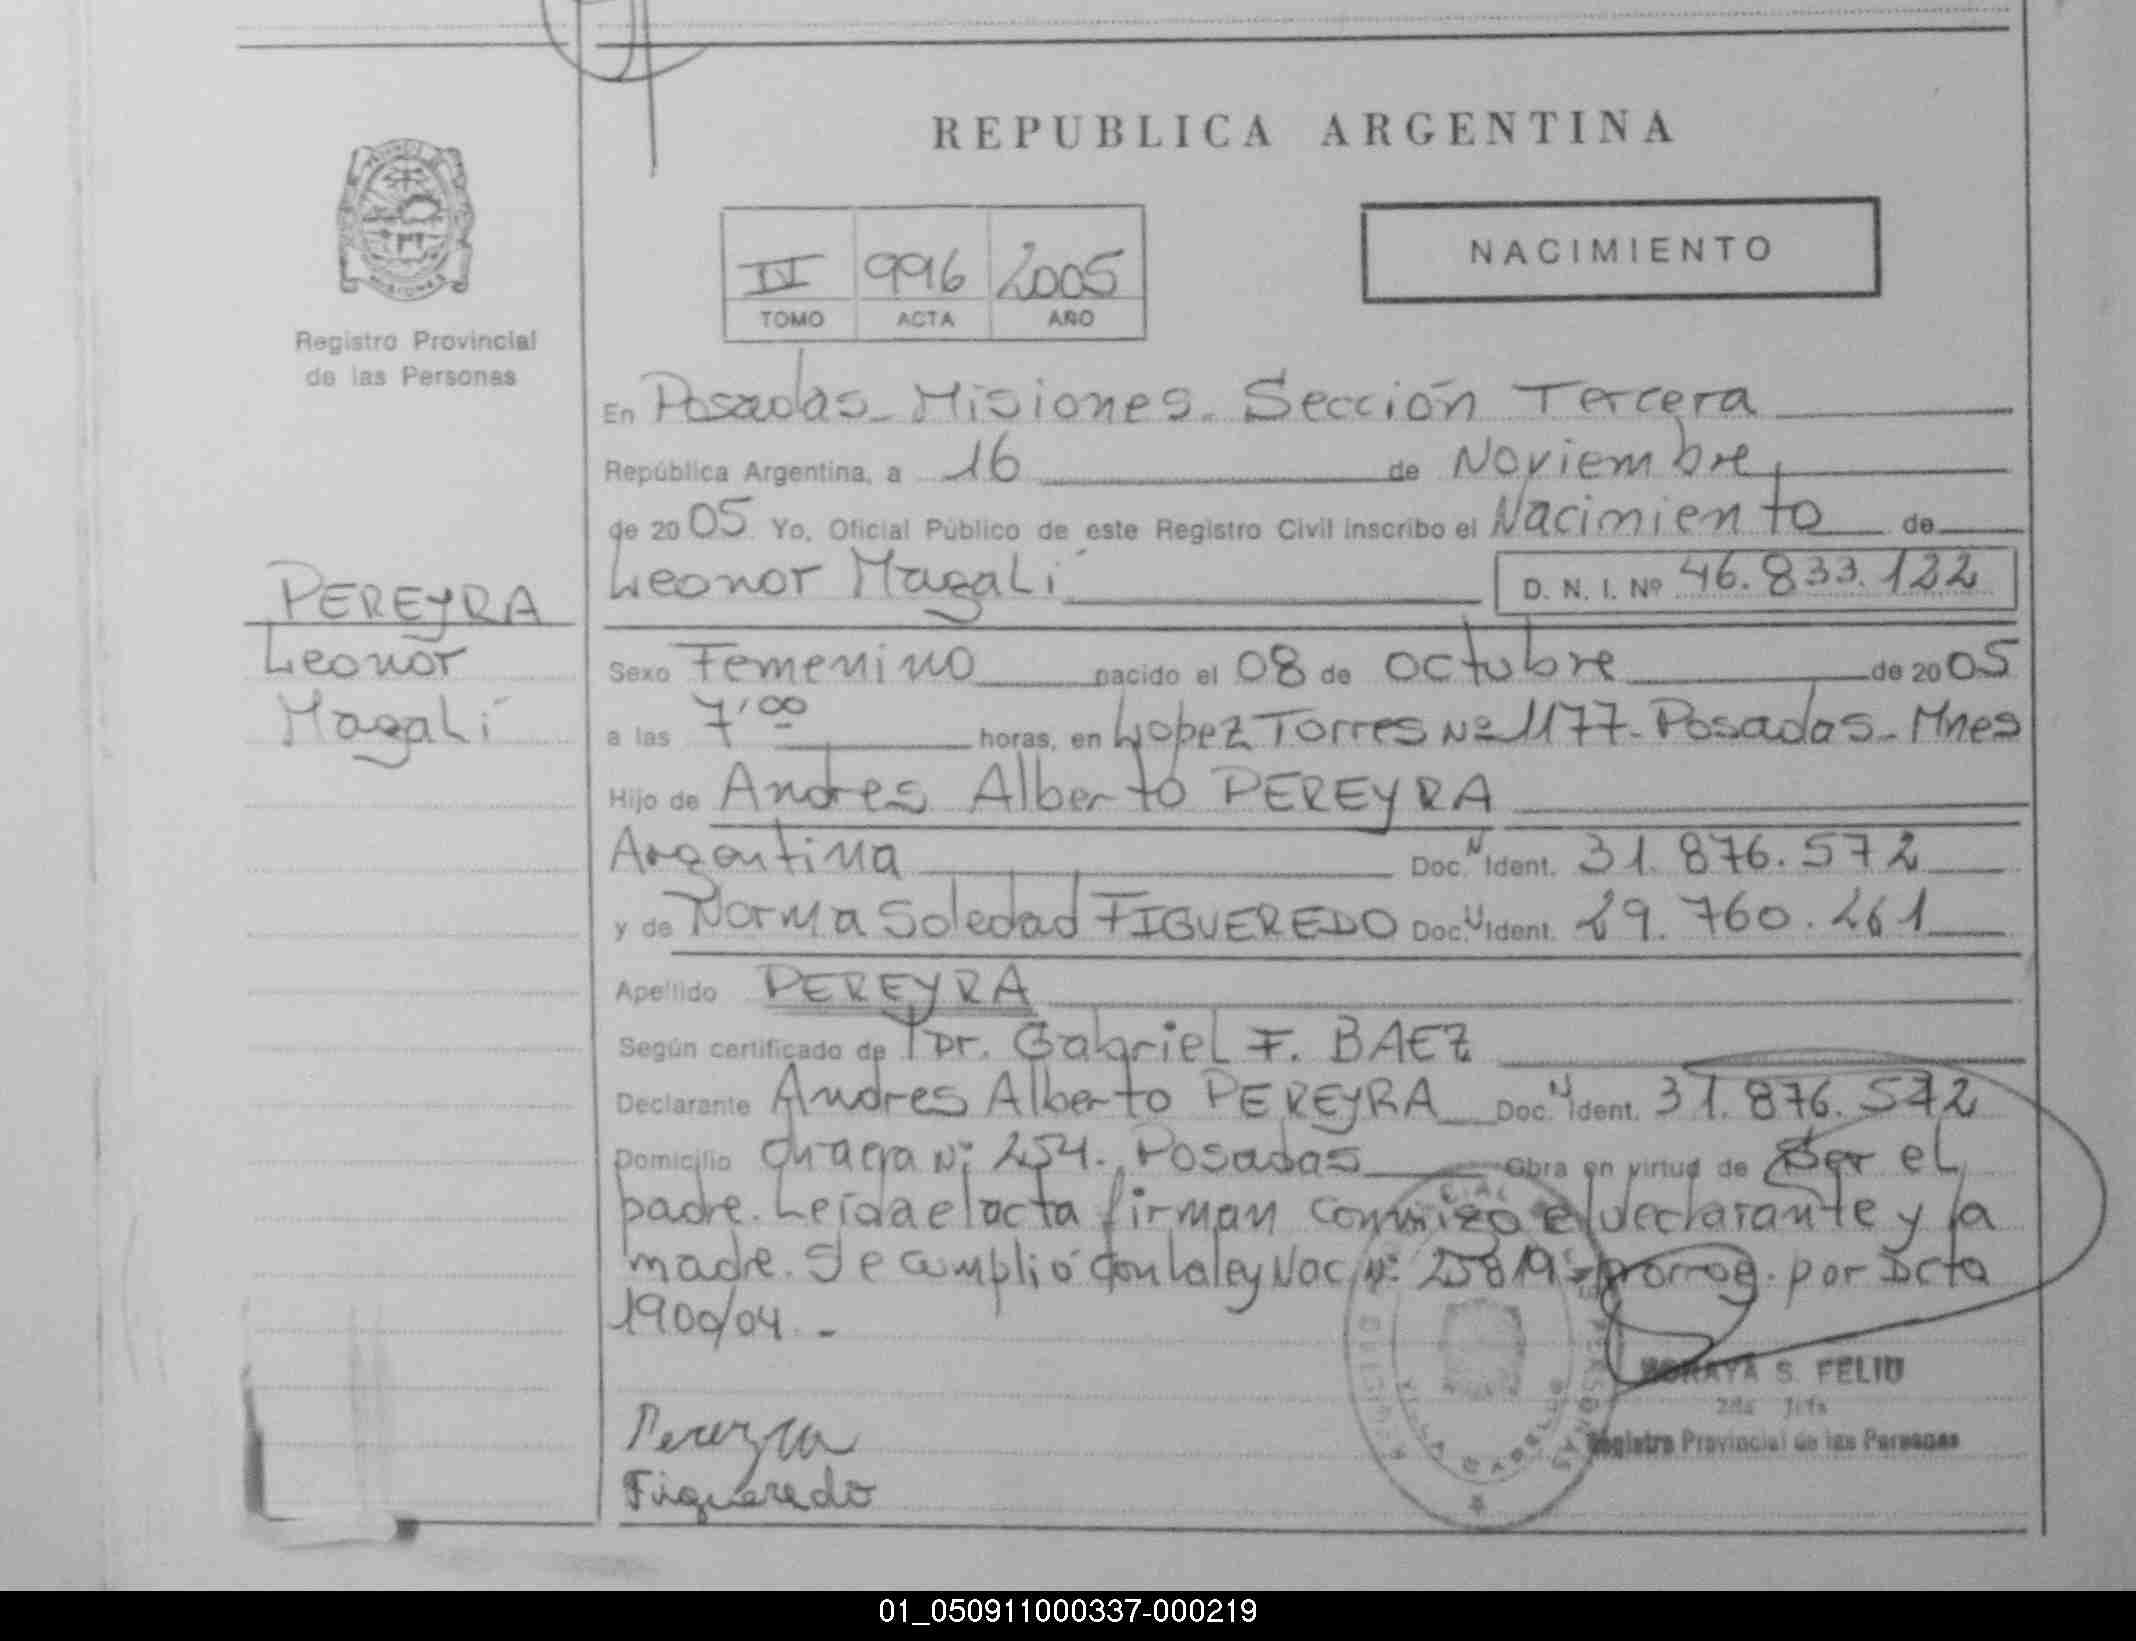 REPUBLICA ARGENTINA
NACIMIENTO
996 2005
TOMO ACTA AÑO
Registro Provincial
de las Personas
En Posadas - Misiones - Sección Tercera
República Argentina, a 16 de Noviembre
de 2005 Yo, Oficial Público de este Registro Civil inscribo el Nacimiento de
Leonor Magalí D. N. I. Nº 46.833.122
PEREYRA
Leonor
Magalí
Sexo Femenino nacido el 08 de octubre de 2005
a las 7'00 horas, en Lopez Torres Nº 1177 - Posadas - Mnes
Hijo de Andres Alberto PEREYRA
Argentina Doc. N. Ident. 31.876.572
y de Norma Soledad FIGUEREDO Doc. N. Ident. 29.760.261
Apellido PEREYRA
Según certificado de Dr. Gabriel F. BAEZ
Declarante Andres Alberto PEREYRA Doc. N. Ident. 31.876.572
Domicilio chacra Nº 254. Posadas Obra en virtud de Ser el
padre. Leída el acta firman conmigo el declarante y la
madre. Se cumplió con la ley Nac Nº 25819 prorrog. por Dcto
1900/04 -
SORAYA S. FELIU
Registro Provincial de las Personas
Pereyra
Figueredo
VILLA CABELLO
01_050911000337-000219